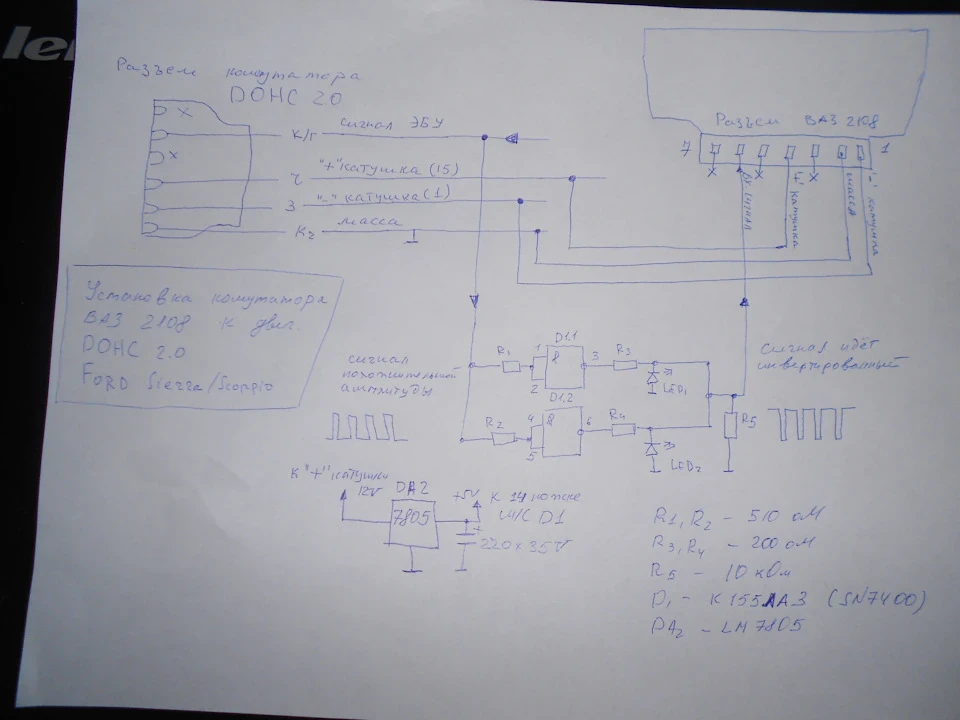 le
Разъем комутатора
DOHC 2.0
X
X
К/Г сигнал ЭБУ
Ч "+" катушка (15)
З "-" катушка (1)
Кг масса
Разъем ВАЗ 2108
7
1
X
X
X
Вх. сигнал
"+" катушка
масса
"-" катушка
Установка комутатора
ВАЗ 2108 к двиг.
DOHC 2.0
FORD Sierra/Scorpio
сигнал
положительной
амплитуды
R1
1
2
D1.1
8
3
R3
LED1
D1.2
R2
4
5
8
6
R4
LED2
R5
Сигнал идёт
инвертированный
К "+" катушки
12V
DA2
7805
+5V
+
220 x 35V
К 14 ножке
М/С D1
R1, R2 - 510 оМ
R3, R4 - 200 оМ
R5 - 10 кОм
D1 - К155ЛА3 (SN7400)
DA2 - LM7805